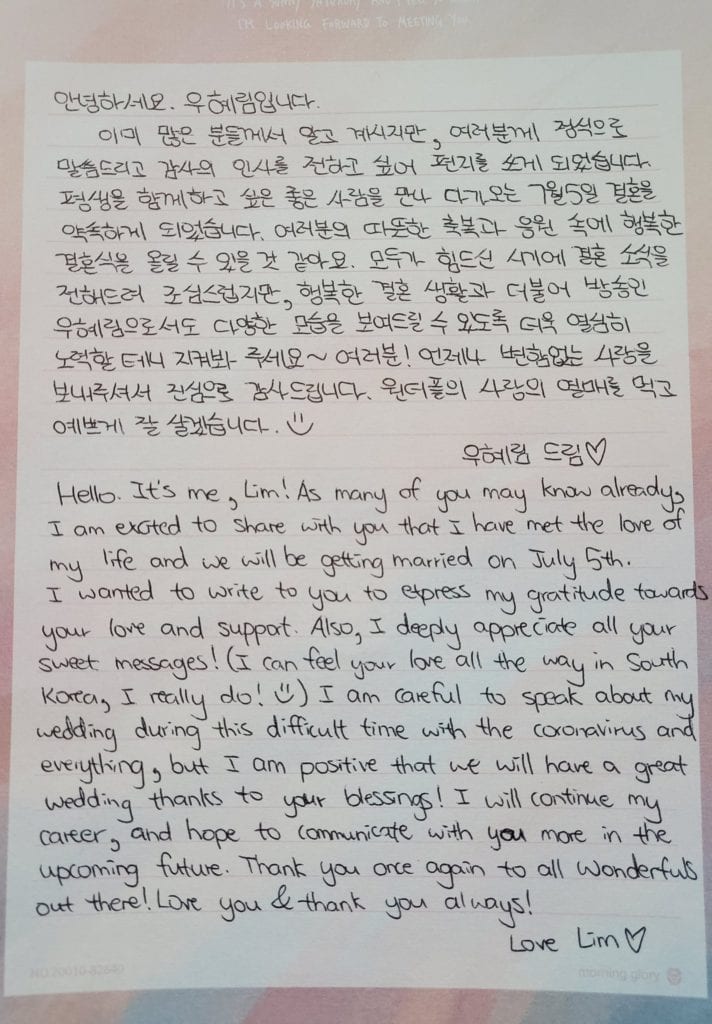 IT'S A SUNNY SATURDAY AND I
I'M LOOKING FORWARD TO MEETING YOU
안녕하세요. 우혜림입니다.
이미 많은 분들께서 알고 계시지만, 여러분께 정식으로
말씀드리고 감사의 인사를 전하고 싶어 편지를 쓰게 되었습니다.
평생을 함께하고 싶은 좋은 사람을 만나 다가오는 7월5일 결혼을
약속하게 되었습니다. 여러분의 따뜻한 축복과 응원 속에 행복한
결혼식을 올릴 수 있을 것 같아요. 모두가 힘드신 시기에 결혼 소식을
전해드려 조심스럽지만, 행복한 결혼 생활과 더불어 방송인
우혜림으로서도 다양한 모습을 보여드릴 수 있도록 더욱 열심히
노력할 테니 지켜봐 주세요~ 여러분! 언제나 변함없는 사랑을
보내주셔서 진심으로 감사드립니다. 원더풀의 사랑의 열매를 먹고
예쁘게 잘 살겠습니다.
우혜림 드림♡
Hello. It's me, Lim! As many of you may know already,
I am excited to share with you that I have met the love of
my life and we will be getting married on July 5th.
I wanted to write to you to express my gratitude towards
your love and support. Also, I deeply appreciate all your
sweet messages! (I can feel your love all the way in South
Korea, I really do! ) I am careful to speak about my
wedding during this difficult time with the coronavirus and
everything, but I am positive that we will have a great
wedding thanks to your blessings! I will continue my
career, and hope to communicate with you more in the
upcoming future. Thank you once again to all Wonderfuls
out there! Love you & thank you always!
Love Lim♡
NO.20010-82640
morning glory